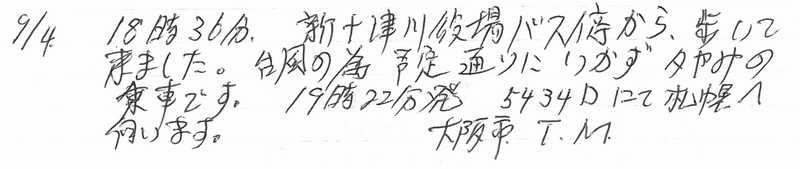 9/4. 18時36分. 新十津川役場バス停から、歩いて
来ました。台風の為 予定通りにいかず 夕やみの
乗車です。 19時22分発 5434Dにて札幌へ
向います。 大阪市. T.M.